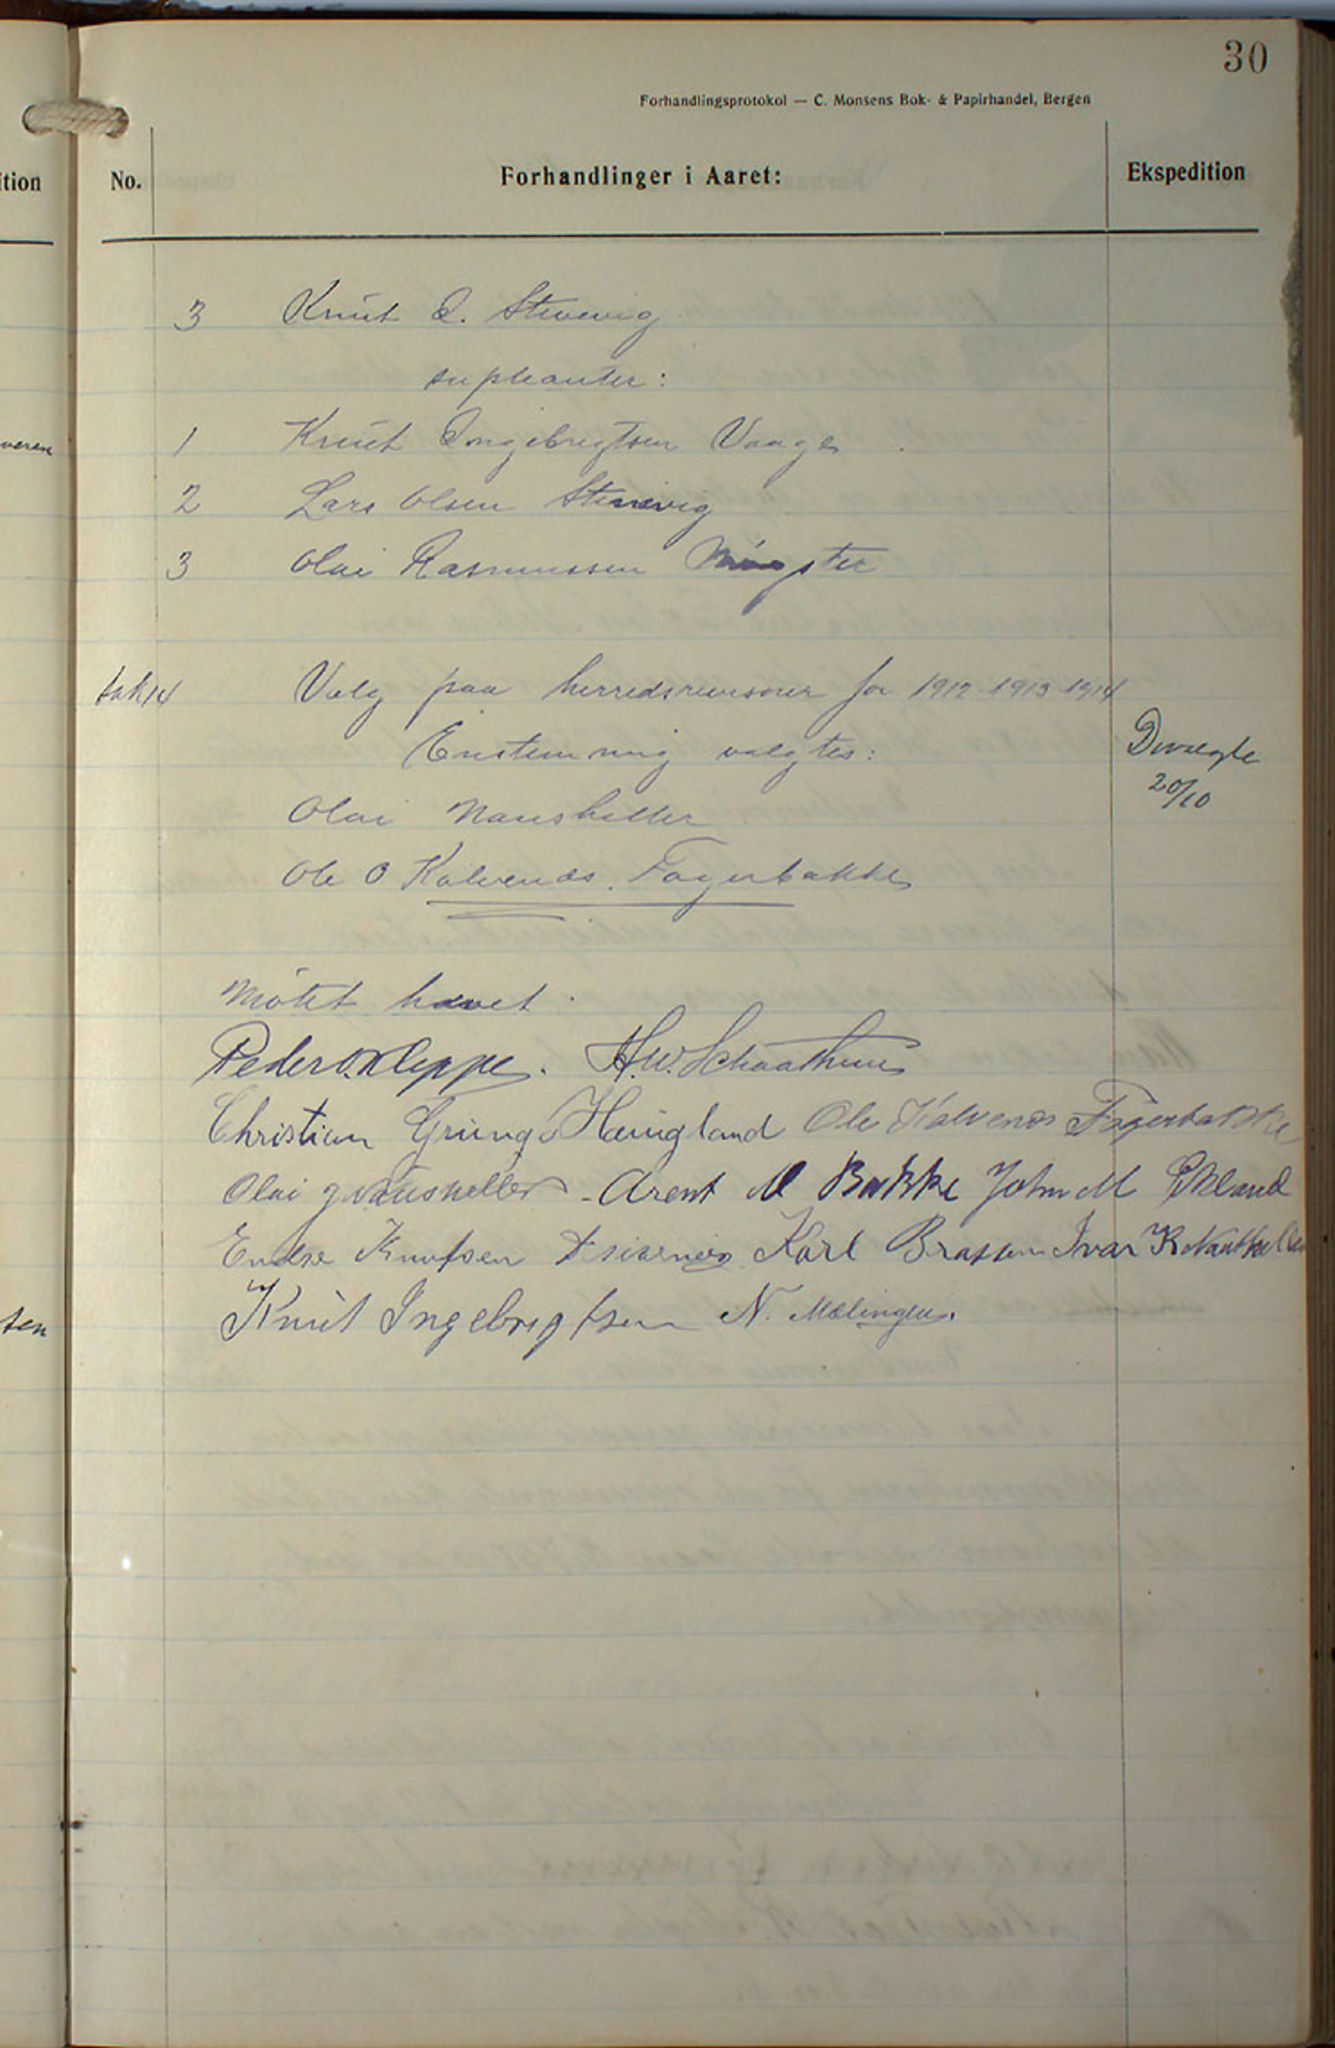 30
Forhandlingsprotokol — C. Monsens Bok- & Papirhandel, Bergen
ition
No.
Forhandlinger i Aaret:
Ekspedition
3 Knut O. Stenevig
supleanter:
1 Knut Ingebrigtsen Vaage
veren
2 Lars Olsen Stenevig
3 Olai Rasmussen Møgster
sak 14 Valg paa herredsrevisorer for 1912-1913-1914
Enstemmig valgtes:
De valgte
20/10
Olai Nausheller
Ole O Kalvenæs. Fagerbakke
Møtet hævet.
Peder O. Kleppe. H.W. Schaathun
Christian Grung Haugland Ole Kalvenæs Fagerbakke
Olai J Nausheller Arent M Bakke John M Ekland
Endre Knutsen Karl Brassem Ivar K
Knut Ingebrigtsen N. Mælingen.
sen